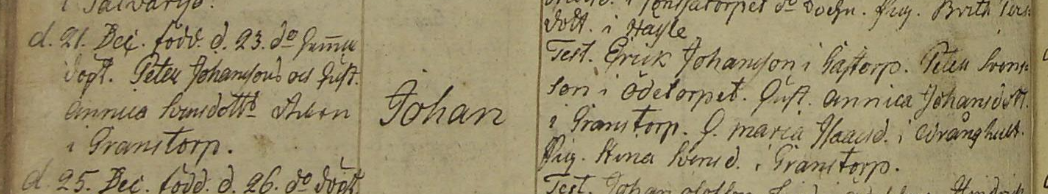 i Salvaryd.
d. 21. Dec. född. d. 23. do hemma
döpt. Peter Johansons och hust.
Annica Svensdottrs Barn
i Granstorp.
d. 25. Dec. född. d. 26. do döpt
Johan
i Jonsatorpet do Sochn. Pig. Brita
dott. i Hagle
Test. Erick Johanson i Gästorp. Peter Svens-
son i Ödetorpet. Hust. Annica Johansdott.
i Granstorp. H. Maria Haansd. i Wrånghult.
Pig. Stina Svensd. i Granstorp.
Test. Johan